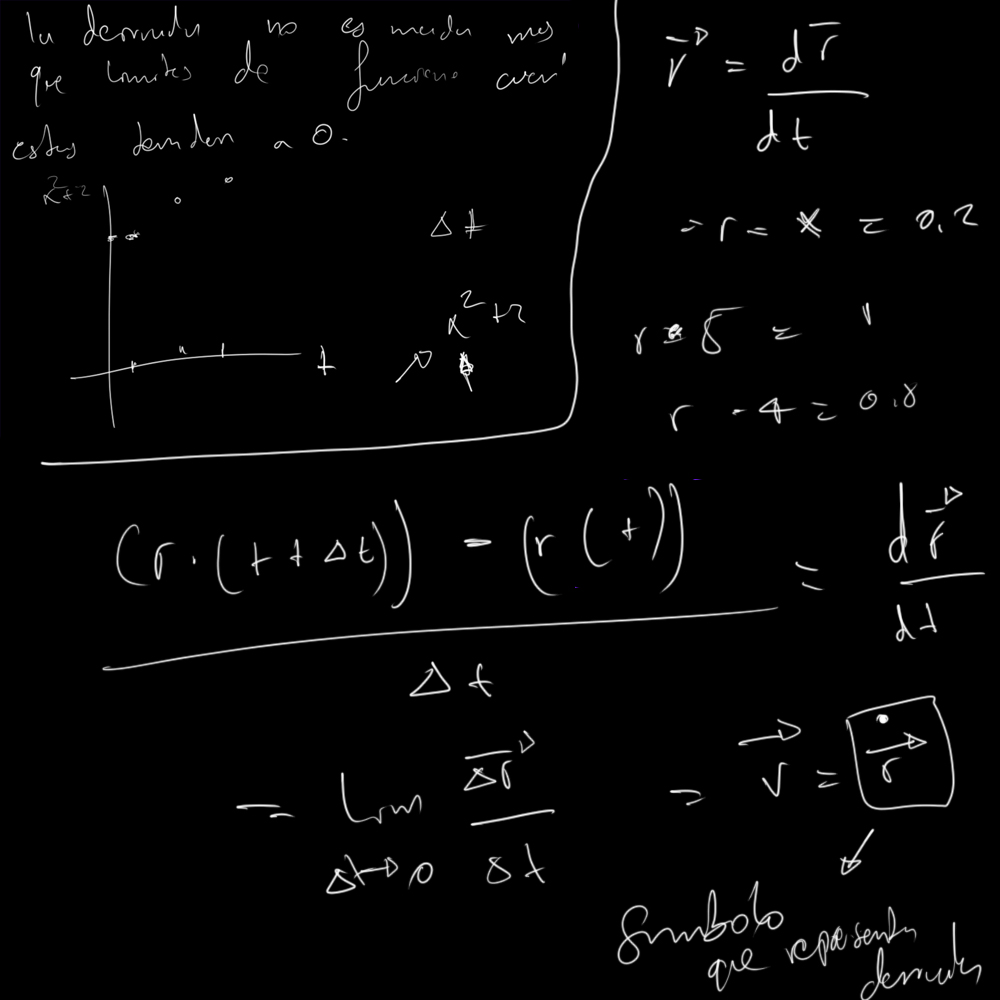 la derivada no es nada mas
que limites de funciones cuan
estas tienden a 0.
x²+2
Δt
x²+2
t
v⃗ = dr⃗
dt
= r = x = 0.2
r = 5 = 1
r - 4 = 0.8
(r·(t+Δt)) - (r(t)) = dr⃗
Δt dt
= Lim Δr⃗ = v⃗ = ṙ⃗
Δt→0 Δt
Simbolo
que representa
derivadas